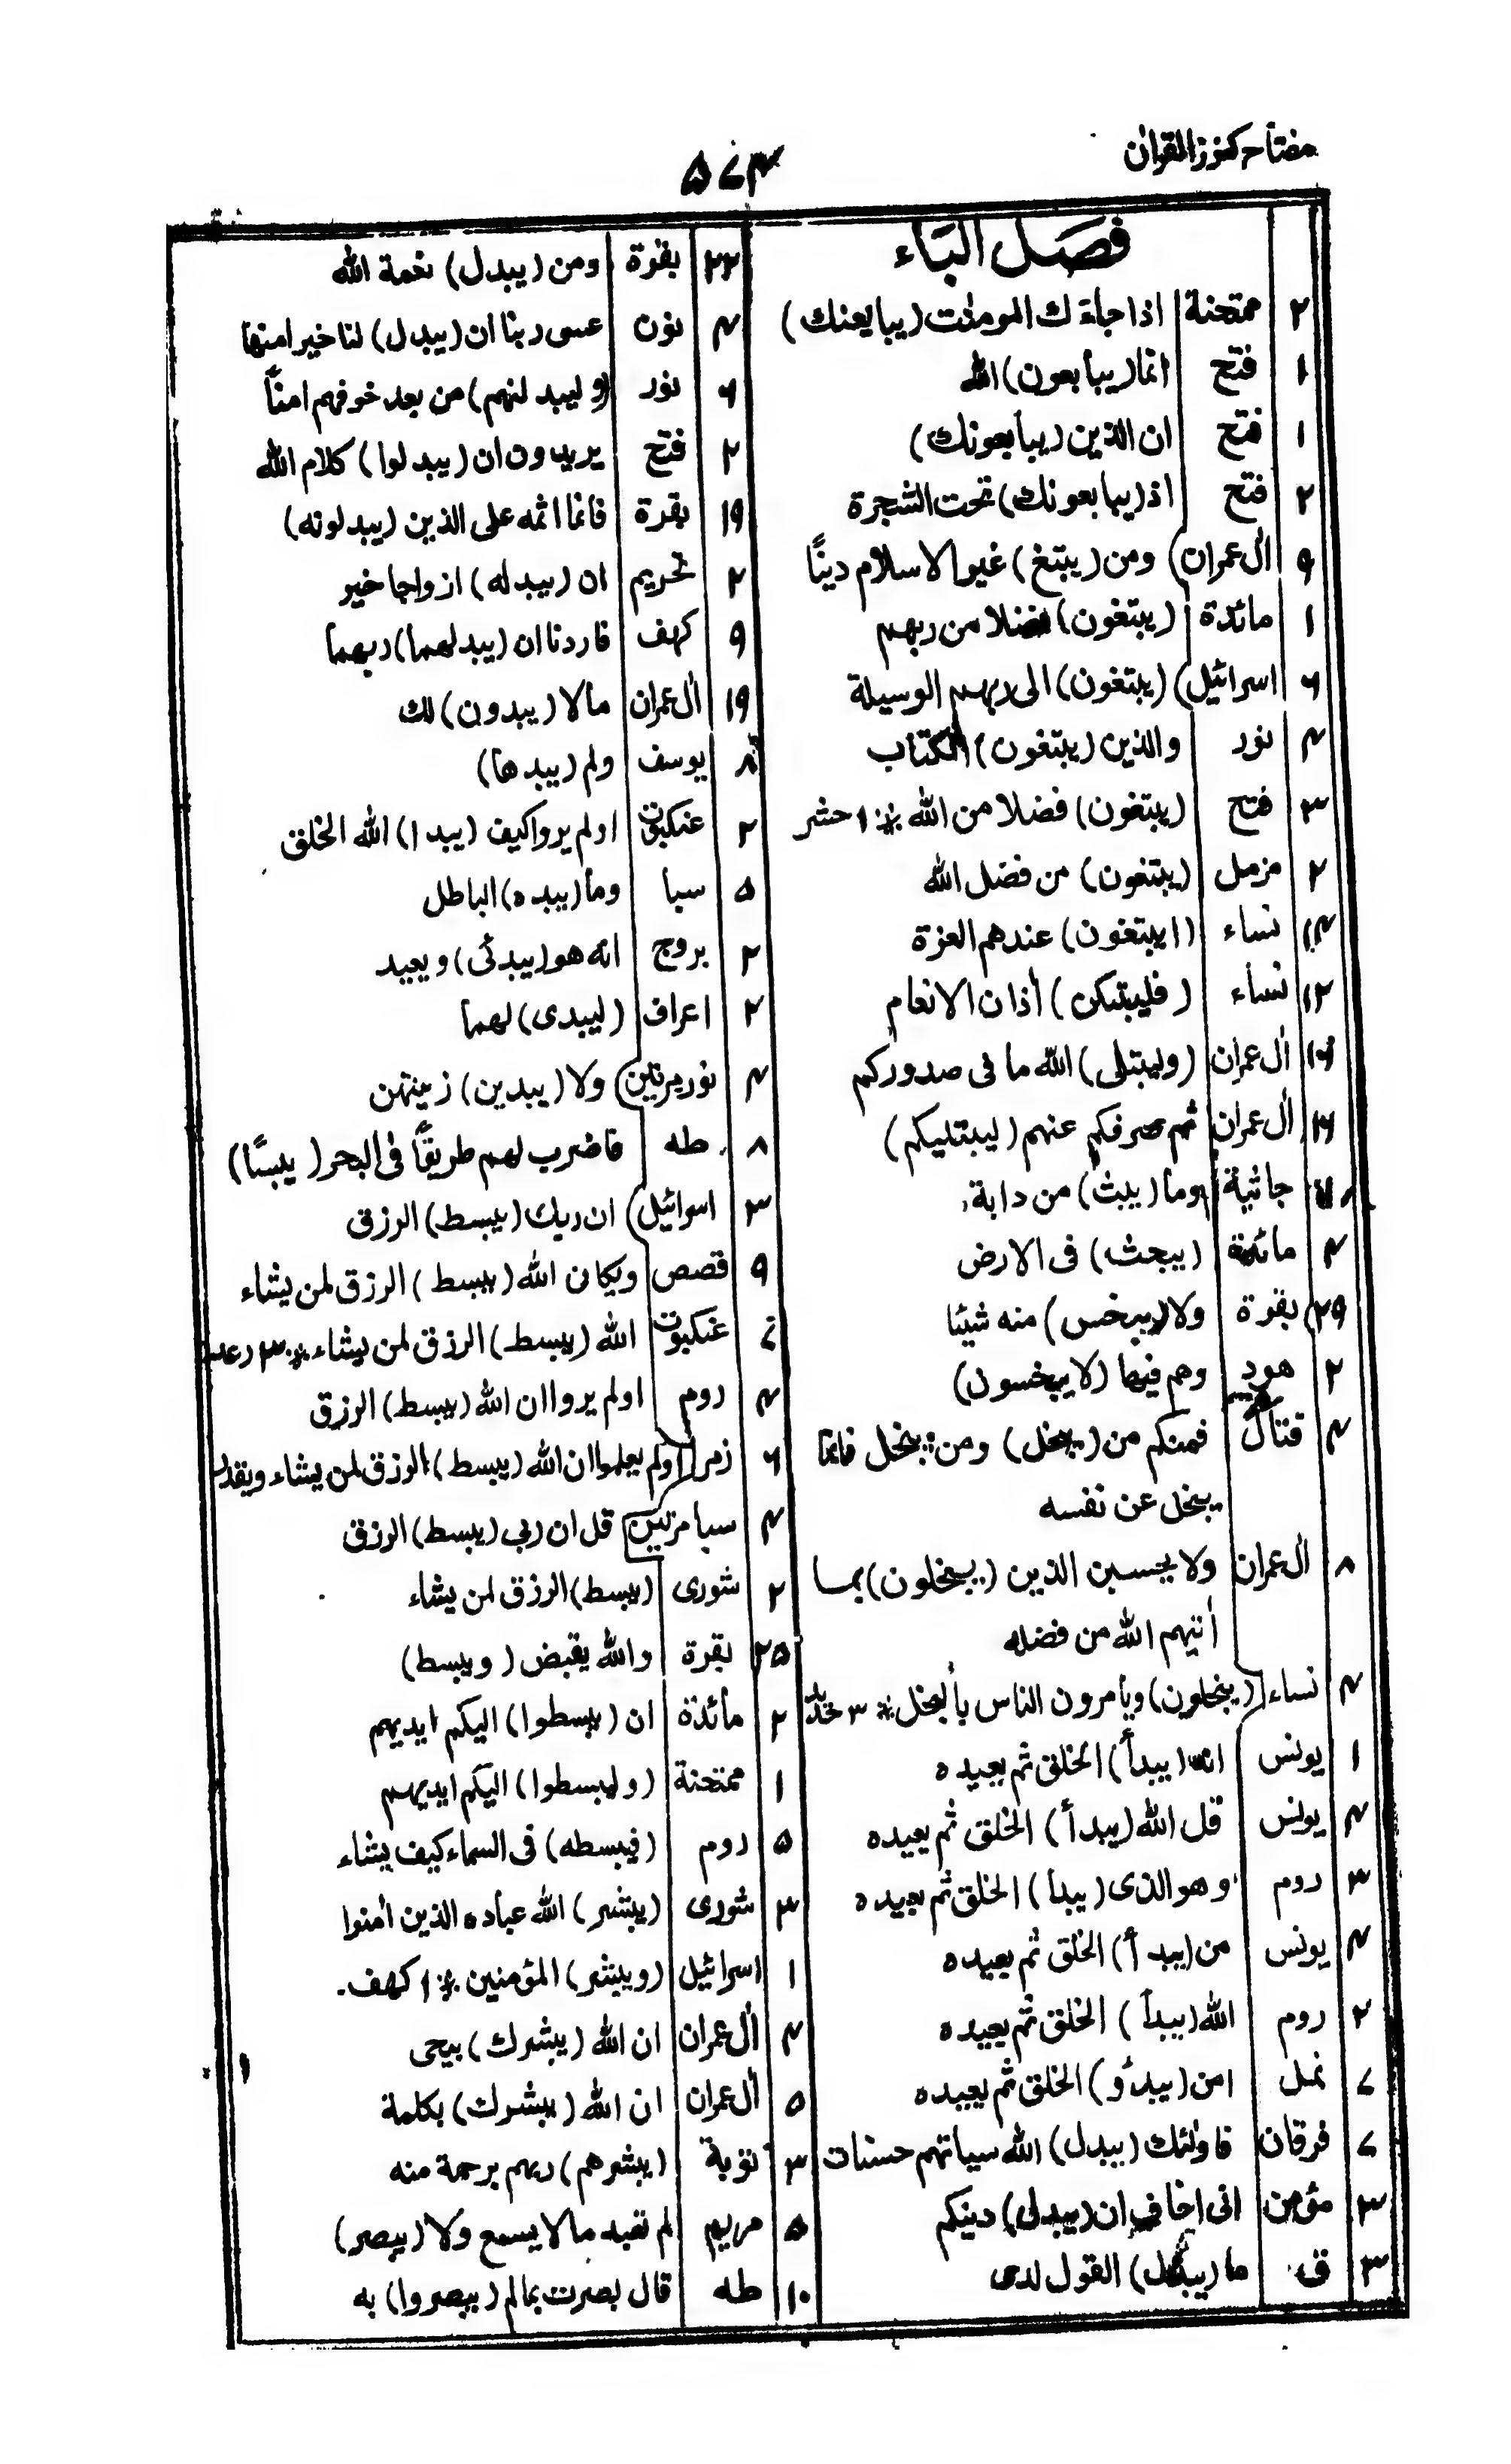 مفتاح كنوز القران
۵۷۴
فصل الباء
۲ ممتحنة اذا جاءك المومنٰت (يبايعنك)
۱ فتح انما (يبايعون) الله
۱ فتح ان الذين (يبايعونك)
۲ فتح اذ (يبايعونك) تحت الشجرة
۹ اٰل عمران ومن (يبتغ) غير الاسلام دينًا
۱ مائدة (يبتغون) فضلا من ربهم
۶ اسرائيل (يبتغون) الى ربهم الوسيلة
۴ نور والذين (يبتغون) الكتاب
۳ فتح (يبتغون) فضلا من الله ※ ۱ حشر
۲ مزمل (يبتغون) من فضل الله
نساء (ايبتغون) عندهم العزة
نساء (فليبتكن) أذان الانعام
۱۶ اٰل عمران (وليبتلى) الله ما فى صدوركم
۱۶ اٰل عمران ثم صرفكم عنهم (ليبتليكم)
جاثية وما (يبث) من دابة
۴ مائدة (يبحث) فى الارض
۳۹ بقرة ولا (يبخس) منه شيئا
۲ هود وهم فيها (لا يبخسون)
۴ قتال فمنكم من (يبخل) ومن يبخل فانما
يبخل عن نفسه
۸ اٰل عمران ولا يحسبن الذين (يبخلون) بما
أتيهم الله من فضله
۴ نساء (يبخلون) ويأمرون الناس بألبخل ※ ۳ حديد
۱ يونس انه (يبدأ) الخلق ثم يعيده
۴ يونس قل الله (يبدأ) الخلق ثم يعيده
۳ روم وهو الذى (يبدا) الخلق ثم يعيده
۴ يونس من (يبدأ) الخلق ثم يعيده
۲ روم الله (يبدأ) الخلق ثم يعيده
۷ نمل امن (يبدأو) الخلق ثم يعيده
۷ فرقان فاولئك (يبدل) الله سياتهم حسنات
۳ مؤمن انى اخاف ان (يبدل) دينكم
۳ ق ما (يبدل) القول لدى
بقرة ومن (يبدل) نعمة الله
۴ نون عسى ربنا ان (يبدل) لنا خيرا منها
۶ نور (وليبدلنهم) من بعد خوفهم امنًا
۲ فتح يريدون ان (يبدلوا) كلام الله
۱۹ بقرة فانما اثمه على الذين (يبدلونه)
۲ تحريم ان (يبدله) ازواجا خير
۹ كهف فاردنا ان (يبدلهما) ربهما
۱۹ اٰل عمران مالا (يبدون) لك
۸ يوسف ولم (يبدها)
۲ عنكبوت اولم يروا كيف (يبدا) الله الخلق
۵ سبا وما (يبده) الباطل
۲ بروج انه هو (يبدئ) ويعيد
۲ اعراف (ليبدى) لهما
۴ نور مرتين ولا (يبدين) زينتهن
۸ طه فاضرب لهم طريقًا فى البحر (يبسًا)
۳ اسرائيل ان ربك (يبسط) الرزق
۹ قصص ويكان الله (يبسط) الرزق لمن يشاء
۶ عنكبوت الله (يبسط) الرزق لمن يشاء ※ ۳ رعد
۴ روم اولم يروا ان الله (يبسط) الرزق
۶ زمر اولم يعلموا ان الله (يبسط) الرزق لمن يشاء ويقدر
۴ سبا مرتين قل ان ربى (يبسط) الرزق
۲ شورى (يبسط) الرزق لمن يشاء
بقرة والله يقبض (ويبسط)
۲ مأئدة ان (يبسطوا) اليكم ايديهم
۱ ممتحنة (ويبسطوا) اليكم ايديهم
۵ روم (فيبسطه) فى السماء كيف يشاء
۳ شورى (يبشر) الله عباده الذين اٰمنوا
۱ اسرائيل (ويبشر) المؤمنين ※ ۱ كهف
۴ اٰل عمران ان الله (يبشرك) بيحى
۵ اٰل عمران ان الله (يبشرك) بكلمة
۳ توبة (يبشرهم) ربهم برحمة منه
۵ مريم لم تعبد مالا يسمع ولا (يبصر)
۱۰ طه قال بصرت بمالم (يبصروا) به